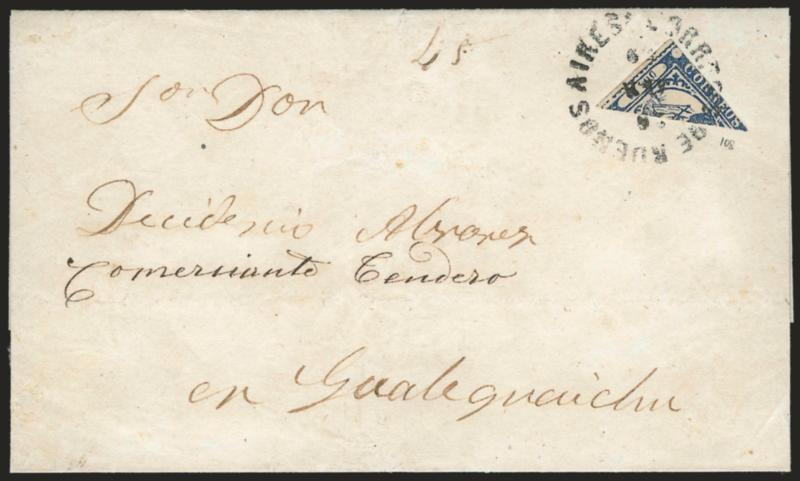 45
Sor Don
Decidenio Alvarez
Comersiante Tendero
en Gualeguaichu
CORREO DE BUENOS AIRES
CORREOS